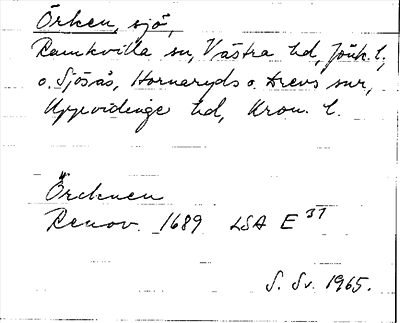 Örken, sjö,
Ramkvilla sn, Västra hd, Jönk. l,
o. Sjösås, Hornaryds o. Drevs snr,
Uppvidinge hd, Kron. l.
Örcknen
Renov. 1689 LSA E 31
S. Sv. 1965.